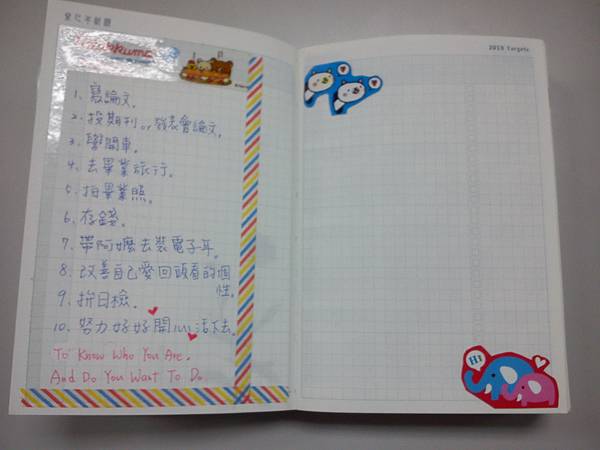 Rilakkuma
2010 targets
1. 寫論文。
2. 投期刊 or 發表會論文。
3. 學開車。
4. 去畢業旅行。
5. 拍畢業照。
6. 存錢。
7. 帶阿嬤去裝電子耳。
8. 改善自己愛回頭看的個
性。
9. 拚日檢。
10. 努力好好開心活下去。
To Know Who You Are.
And Do You Want To Do
Hi